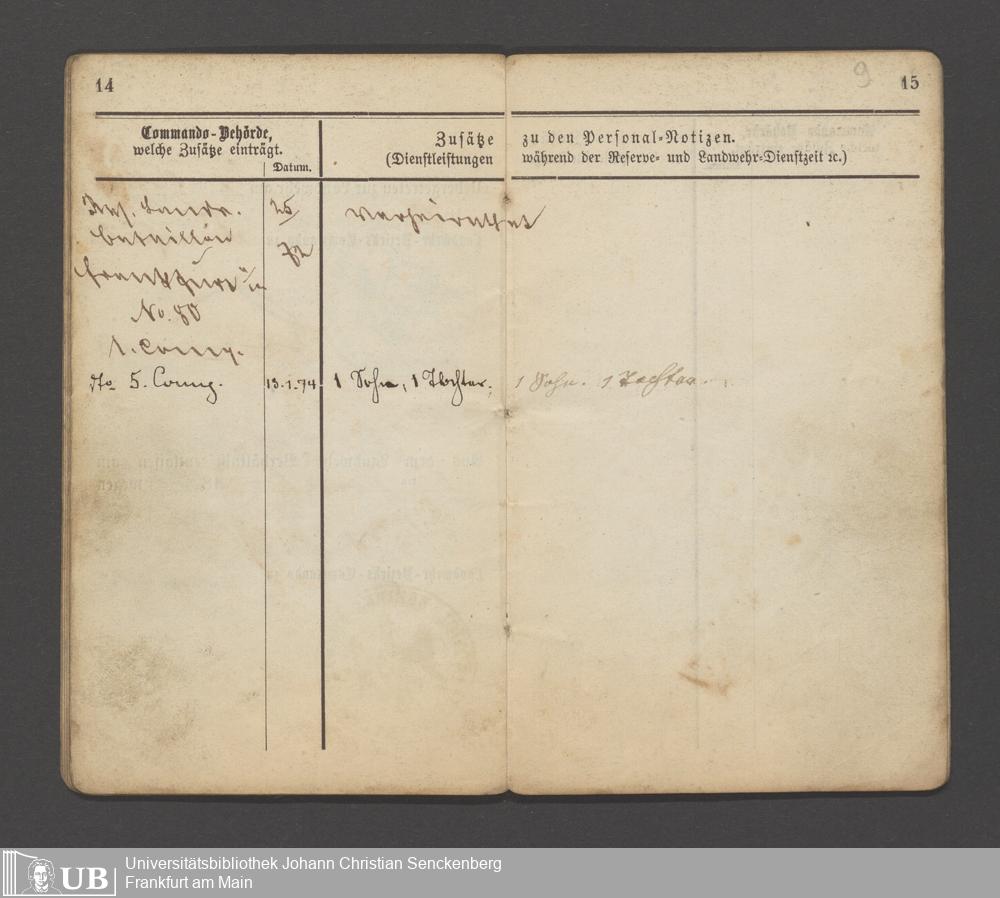 14
9
15
Commando-Behörde,
welche Zusätze einträgt.
Datum.
Zusätze zu den Personal-Notizen.
(Dienstleistungen während der Reserve- und Landwehr-Dienstzeit ꝛc.)
Res. Landw. 25 verheirathet
Bataillon 72
Frankfurt
No. 80
1. Comp.
dto 5. Comp. 13.1.74 1 Sohn, 1 Tochter, 1 Sohn. 1 Tochter.
UB
Universitätsbibliothek Johann Christian Senckenberg
Frankfurt am Main